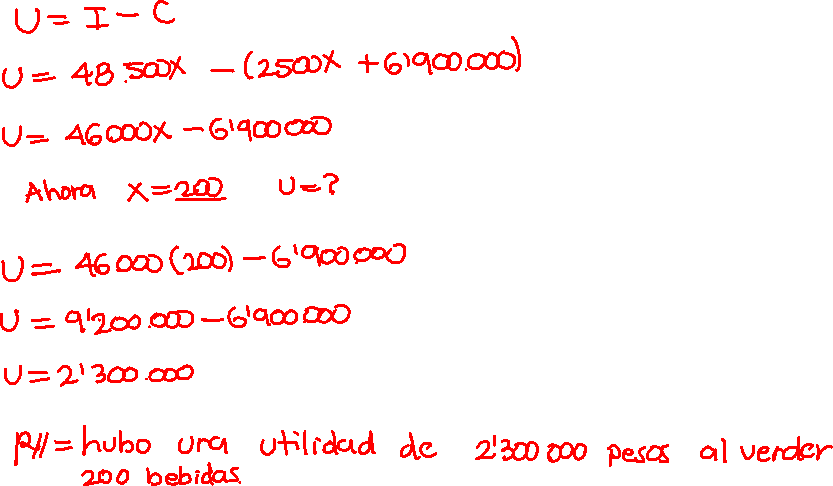 U = I - C
U = 48.500X - (2500X + 6'900.000)
U = 46000X - 6'900000
Ahora X = 200 U = ?
U = 46000(200) - 6'900.000
U = 9'200.000 - 6'900000
U = 2'300.000
R// = hubo una utilidad de 2'300000 pesos al vender
200 bebidas